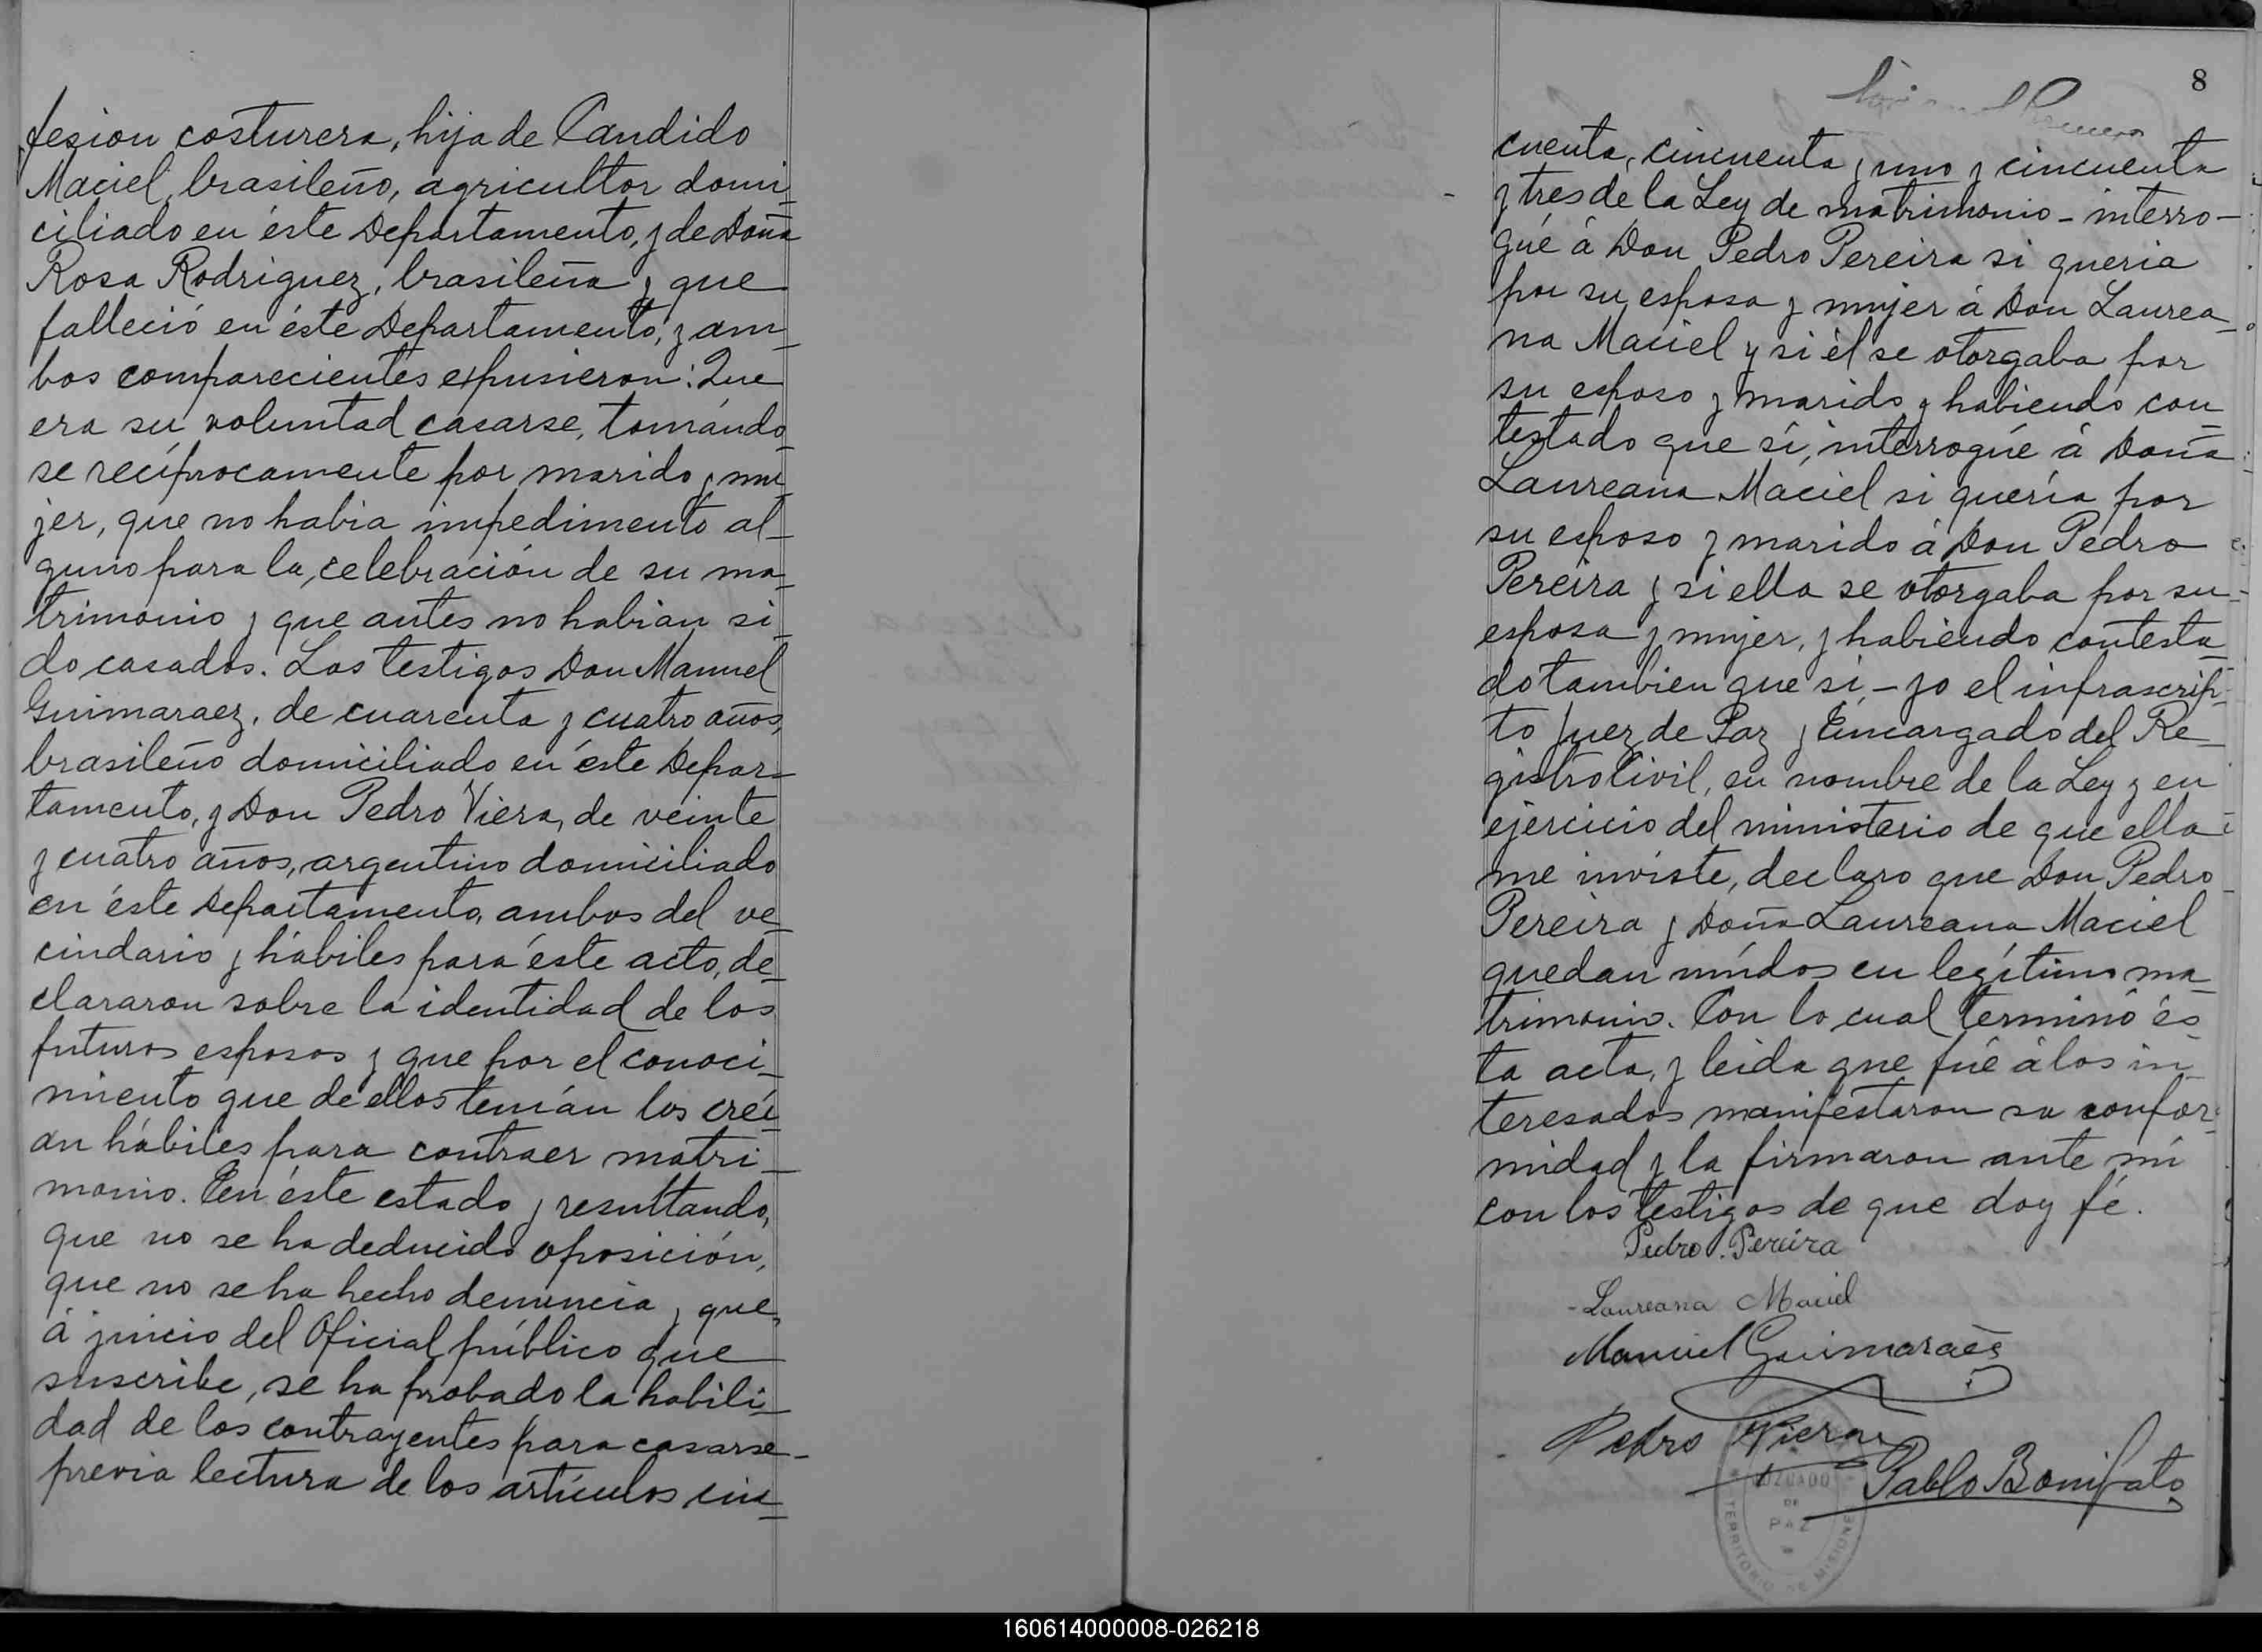 fesion costurera, hija de Candido
Maciel, brasileño, agricultor domi-
ciliado en éste Departamento, y de Doña
Rosa Rodriguez, brasileña y que
falleció en éste Departamento, y am-
bos comparecientes expusieron: Que
era su voluntad casarse, tomándo-
se recíprocamente por marido y mu-
jer, que no habia impedimento al-
guno para la celebración de su ma-
trimonio y que antes no habian si-
do casados. Los testigos Don Manuel
Guimaraez, de cuarenta y cuatro años,
brasileño domiciliado en éste Depar-
tamento, y Don Pedro Viera, de veinte
y cuatro años, argentino domiciliado
en éste Departamento, ambos del ve-
cindario y hábiles para éste acto, de-
clararon sobre la identidad de los
futuros esposos y que por el conoci-
miento que de ellos tenían los creí-
an hábiles para contraer matri-
monio. En éste estado y resultando,
que no se ha deducido oposición,
que no se ha hecho denuncia y que,
á juicio del Oficial público que
suscribe, se ha probado la habili-
dad de los contrayentes para casarse-
previa lectura de los artículos cin-
8
cuenta, cincuenta y uno y cincuenta
y tres de la Ley de matrimonio - interro-
gué á Don Pedro Pereira si queria
por su esposa y mujer á Don Laurea-
na Maciel y si él se otorgaba por
su esposo y marido y habiendo con-
testado que sí, interrogué á Doña
Laureana Maciel si quería por
su esposo y marido á Don Pedro
Pereira y si ella se otorgaba por su
esposa y mujer, y habiendo contesta-
do tambien que sí - yo el infrascrip-
to Juez de Paz y Encargado del Re-
gistro Civil, en nombre de la Ley y en
ejercicio del ministerio de que ella
me inviste, declaro que Don Pedro
Pereira y Doña Laureana Maciel
quedan unídos en legítimo ma-
trimonio. Con lo cual terminó és-
ta acta, y leida que fué á los in-
teresados manifestaron su confor-
midad y la firmaron ante mi
con los testigos de que doy fé.
Pedro Pereira
Laureana Maciel
Manuel Guimaraes
Pedro Viera
Pablo Bonifato
JUZGADO
DE
PAZ
TERRITORIO DE MISIONES
160614000008-026218